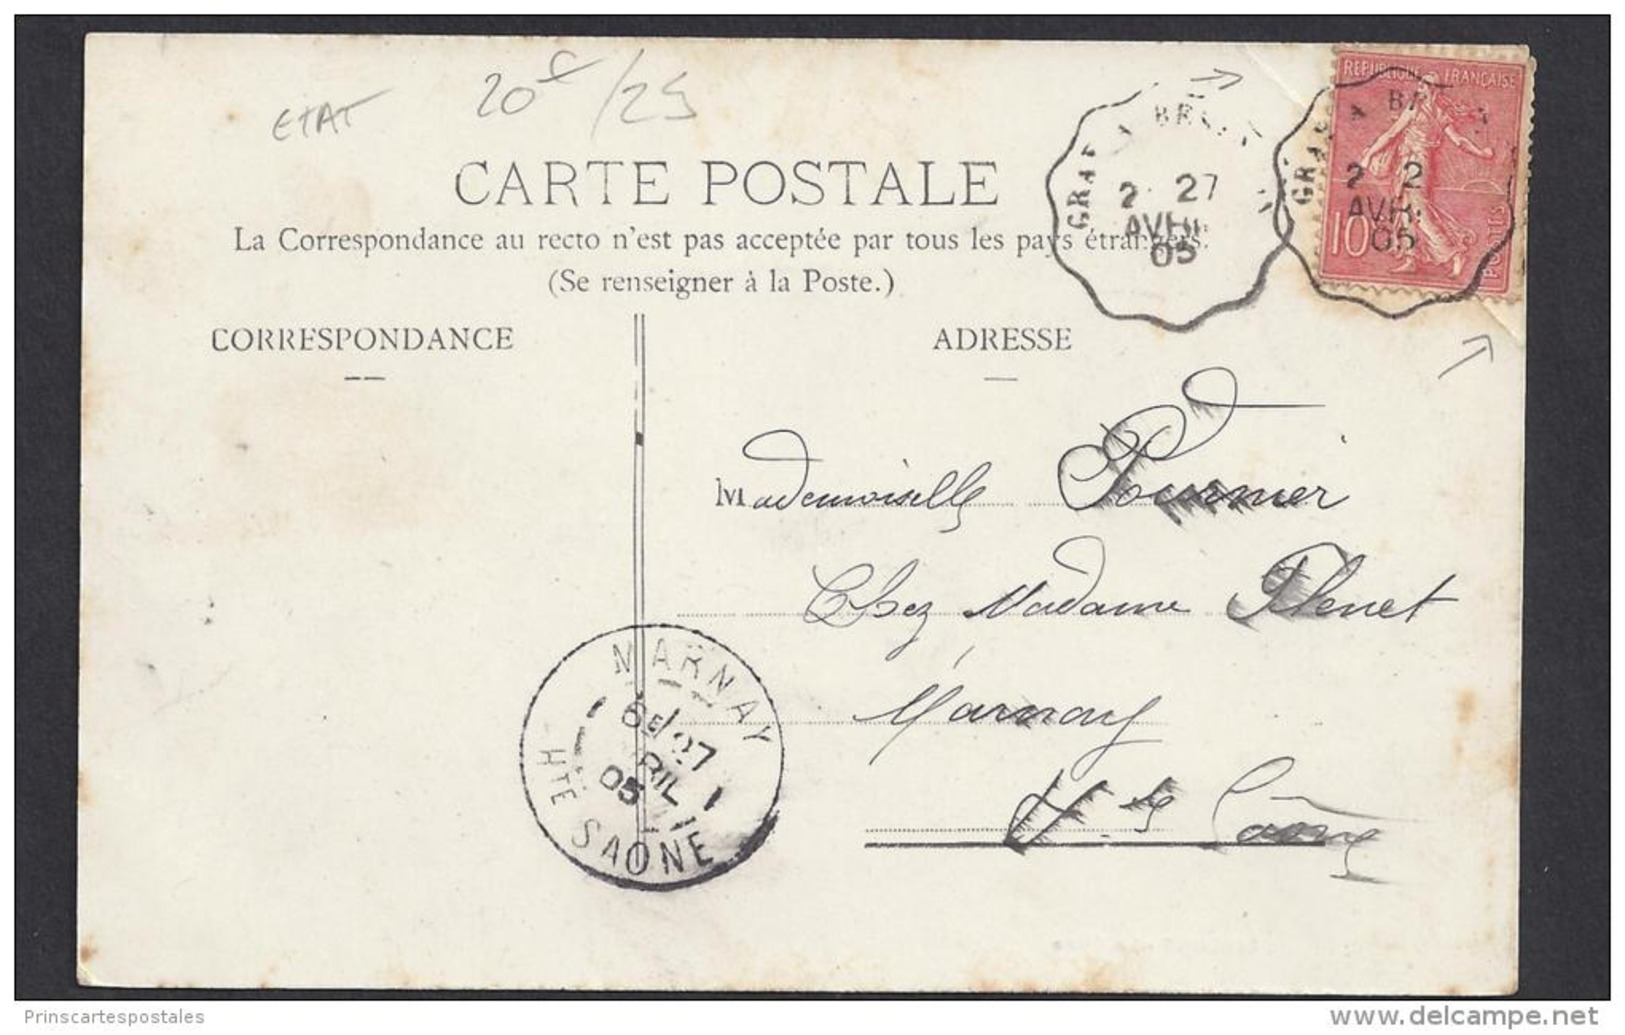 ETAT
20 F/25
CARTE POSTALE
La Correspondance au recto n'est pas acceptée par tous les pays étrangers.
(Se renseigner à la Poste.)
2 27
AVRIL
05
REPUBLIQUE FRANÇAISE
10
POSTES
2 2
AVRIL
05
CORRESPONDANCE
ADRESSE
Mademoiselle Fournier
Chez Madame Plenet
Marnay
Hte Saône
MARNAY
6E/27
RIL
05
HTE SAONE
Prinscartespostales
delcampe.net